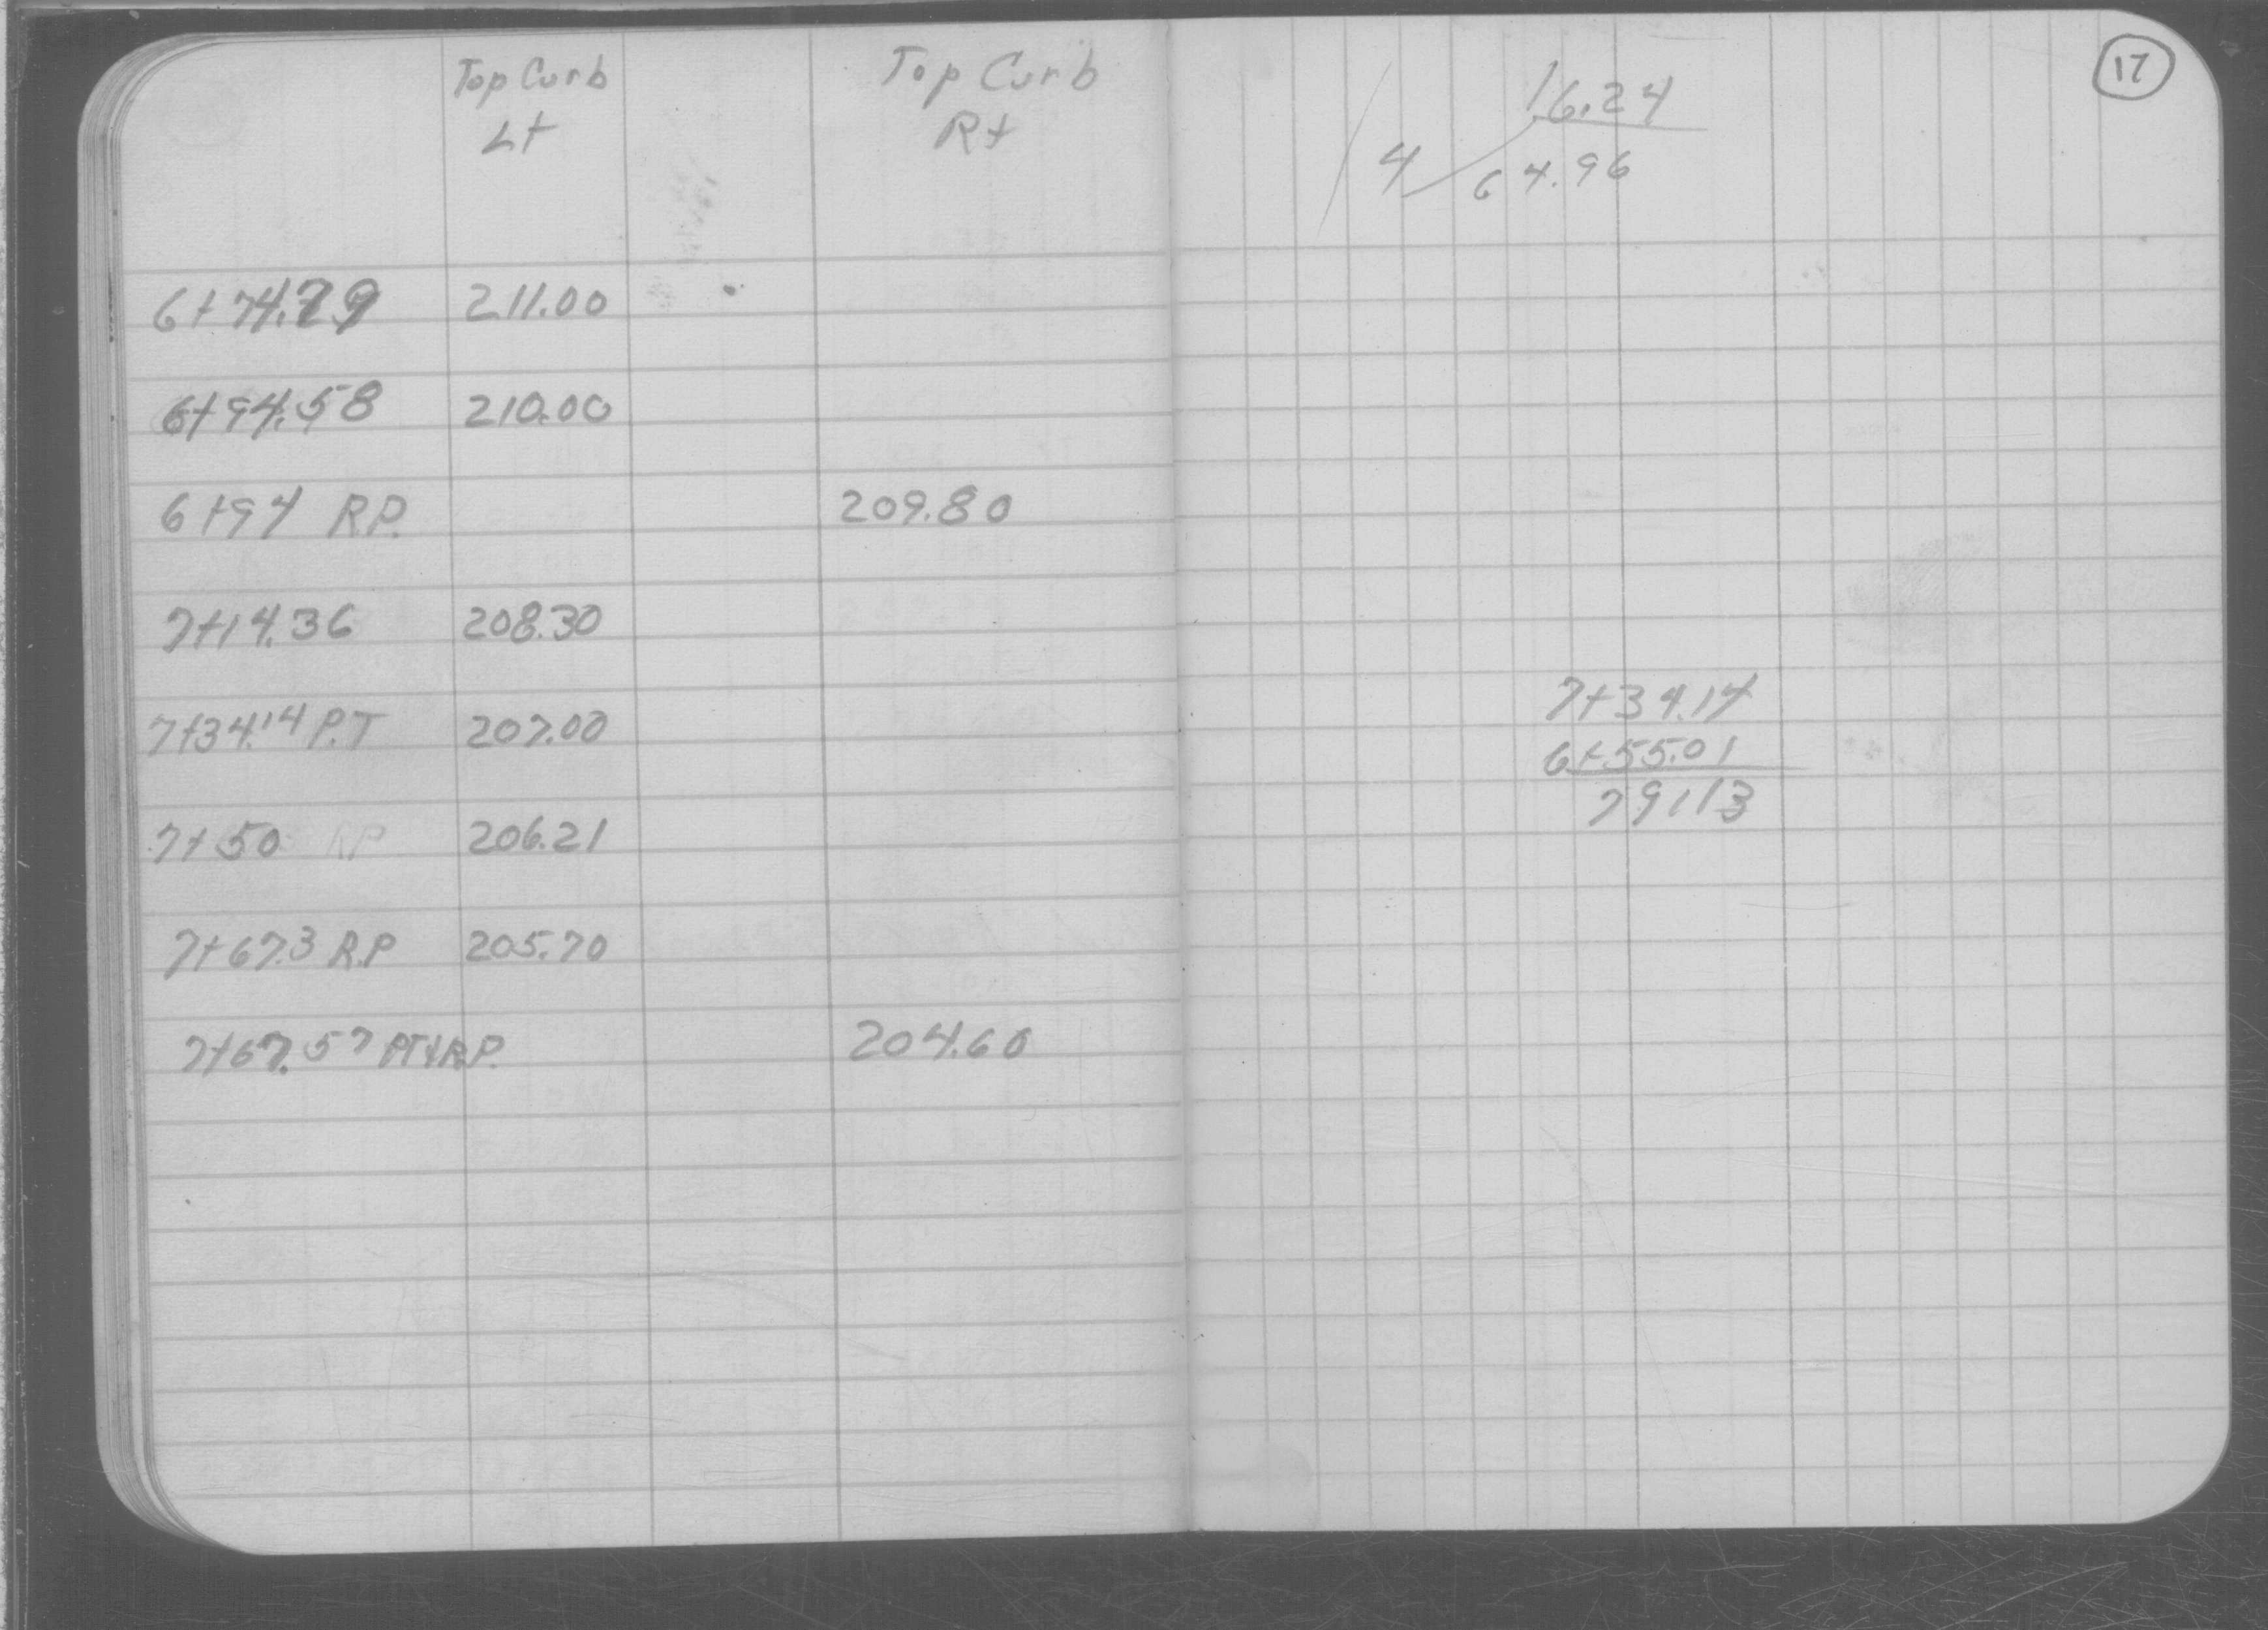 Top Curb Top Curb
Lt Rt
6+74.79 211.00
6+94.58 210.00
6+94 R.P. 209.80
7+14.36 208.30
7+34.14 P.T 207.00
7+50 RP 206.21
7+67.3 R.P 205.70
7+67.57 PT+R.P. 204.60
17
16.24
4 64.96
7+34.14
6+55.01
79113